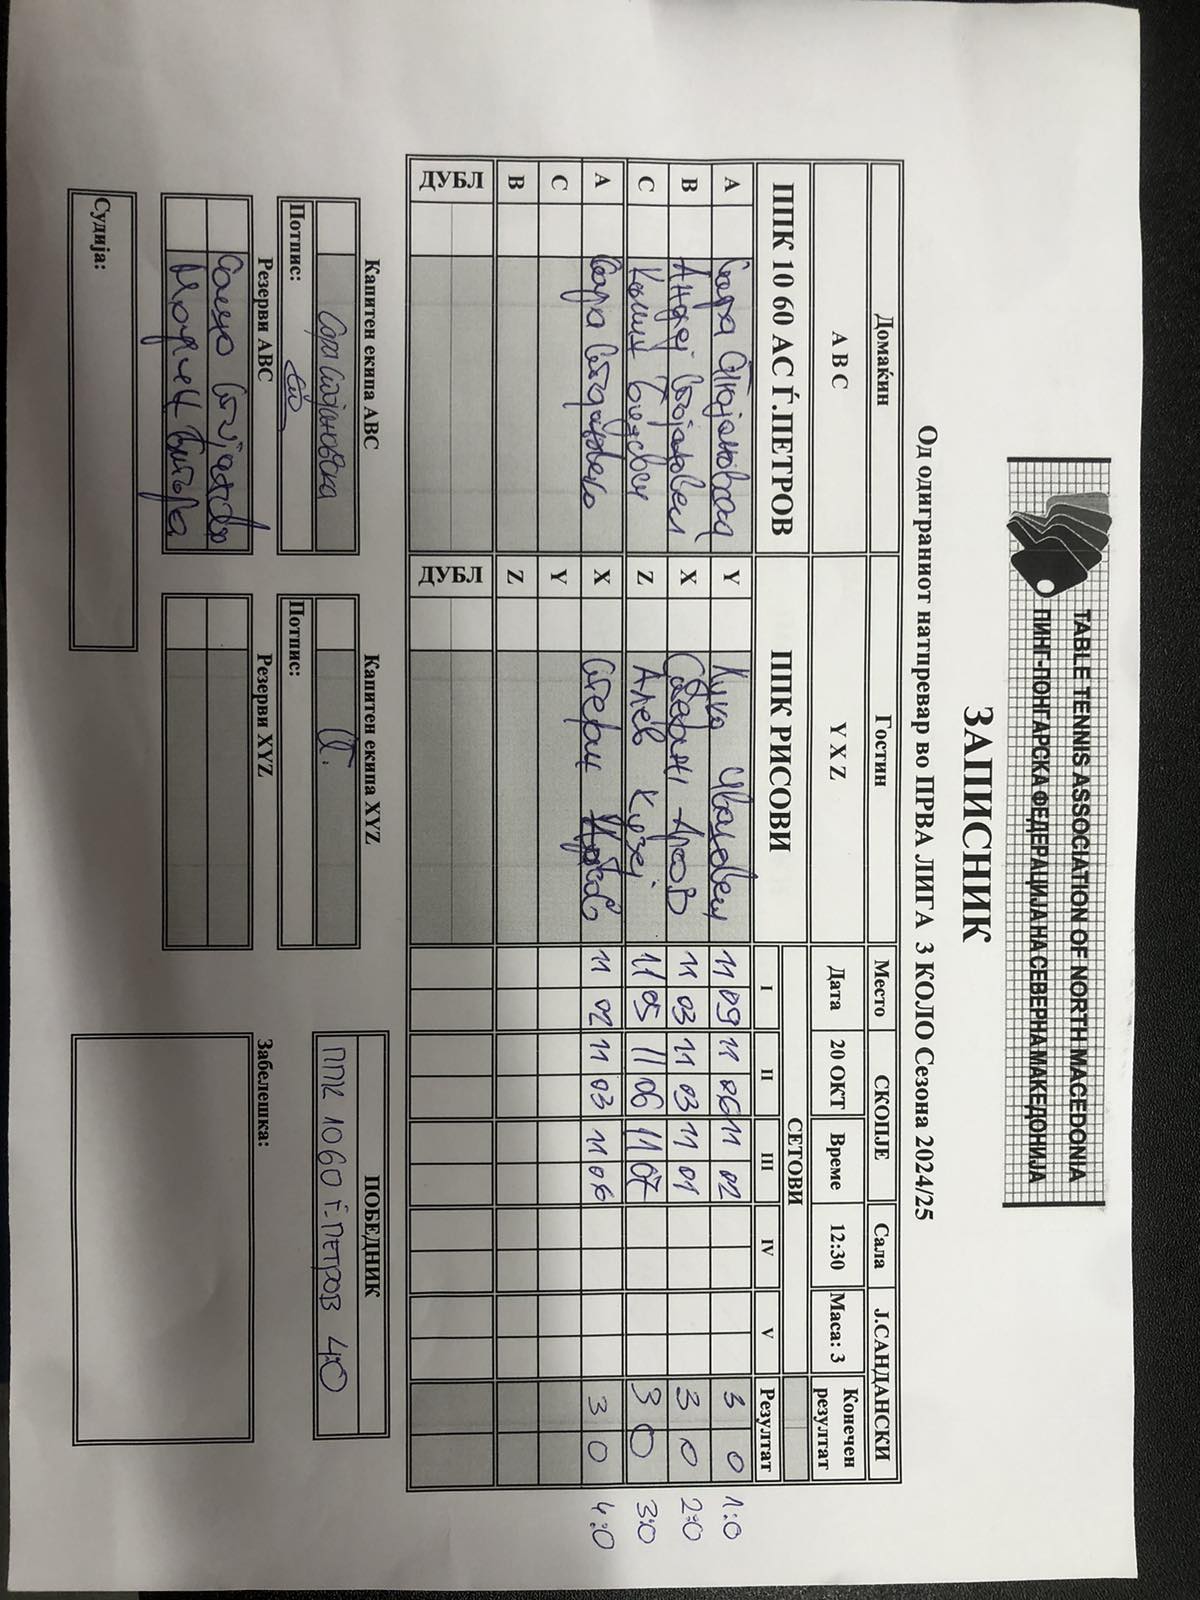 TABLE TENNIS ASSOCIATION OF NORTH MACEDONIA
ПИНГ-ПОНГАРСКА ФЕДЕРАЦИЈА НА СЕВЕРНА МАКЕДОНИЈА
ЗАПИСНИК
Од одиграниот натпревар во ПРВА ЛИГА 3 КОЛО Сезона 2024/25
Домаќин Гостин Место СКОПЈЕ Сала Ј.САНДАНСКИ
A B C Y X Z Дата 20 ОКТ Време 12:30 Маса: 3 Конечен резултат
ППК 10 60 АС Ѓ.ПЕТРОВ ППК РИСОВИ СЕТОВИ
I II III IV V Резултат
A Сара Y 11 09 11 06 11 02 3 0 1:0
B Андеј X 11 03 11 03 11 01 3 0 2:0
C Z Алев Кузеј 11 05 11 06 11 07 3 0 3:0
A Сара X 11 02 11 03 11 06 3 0 4:0
C Y
B Z
ДУБЛ ДУБЛ
Капитен екипа ABC Капитен екипа XYZ ПОБЕДНИК
Сара Стојановска ППК 1060 Ѓ.ПЕТРОВ 4:0
Потпис: Потпис:
Резерви ABC Резерви XYZ Забелешка:
Судија: